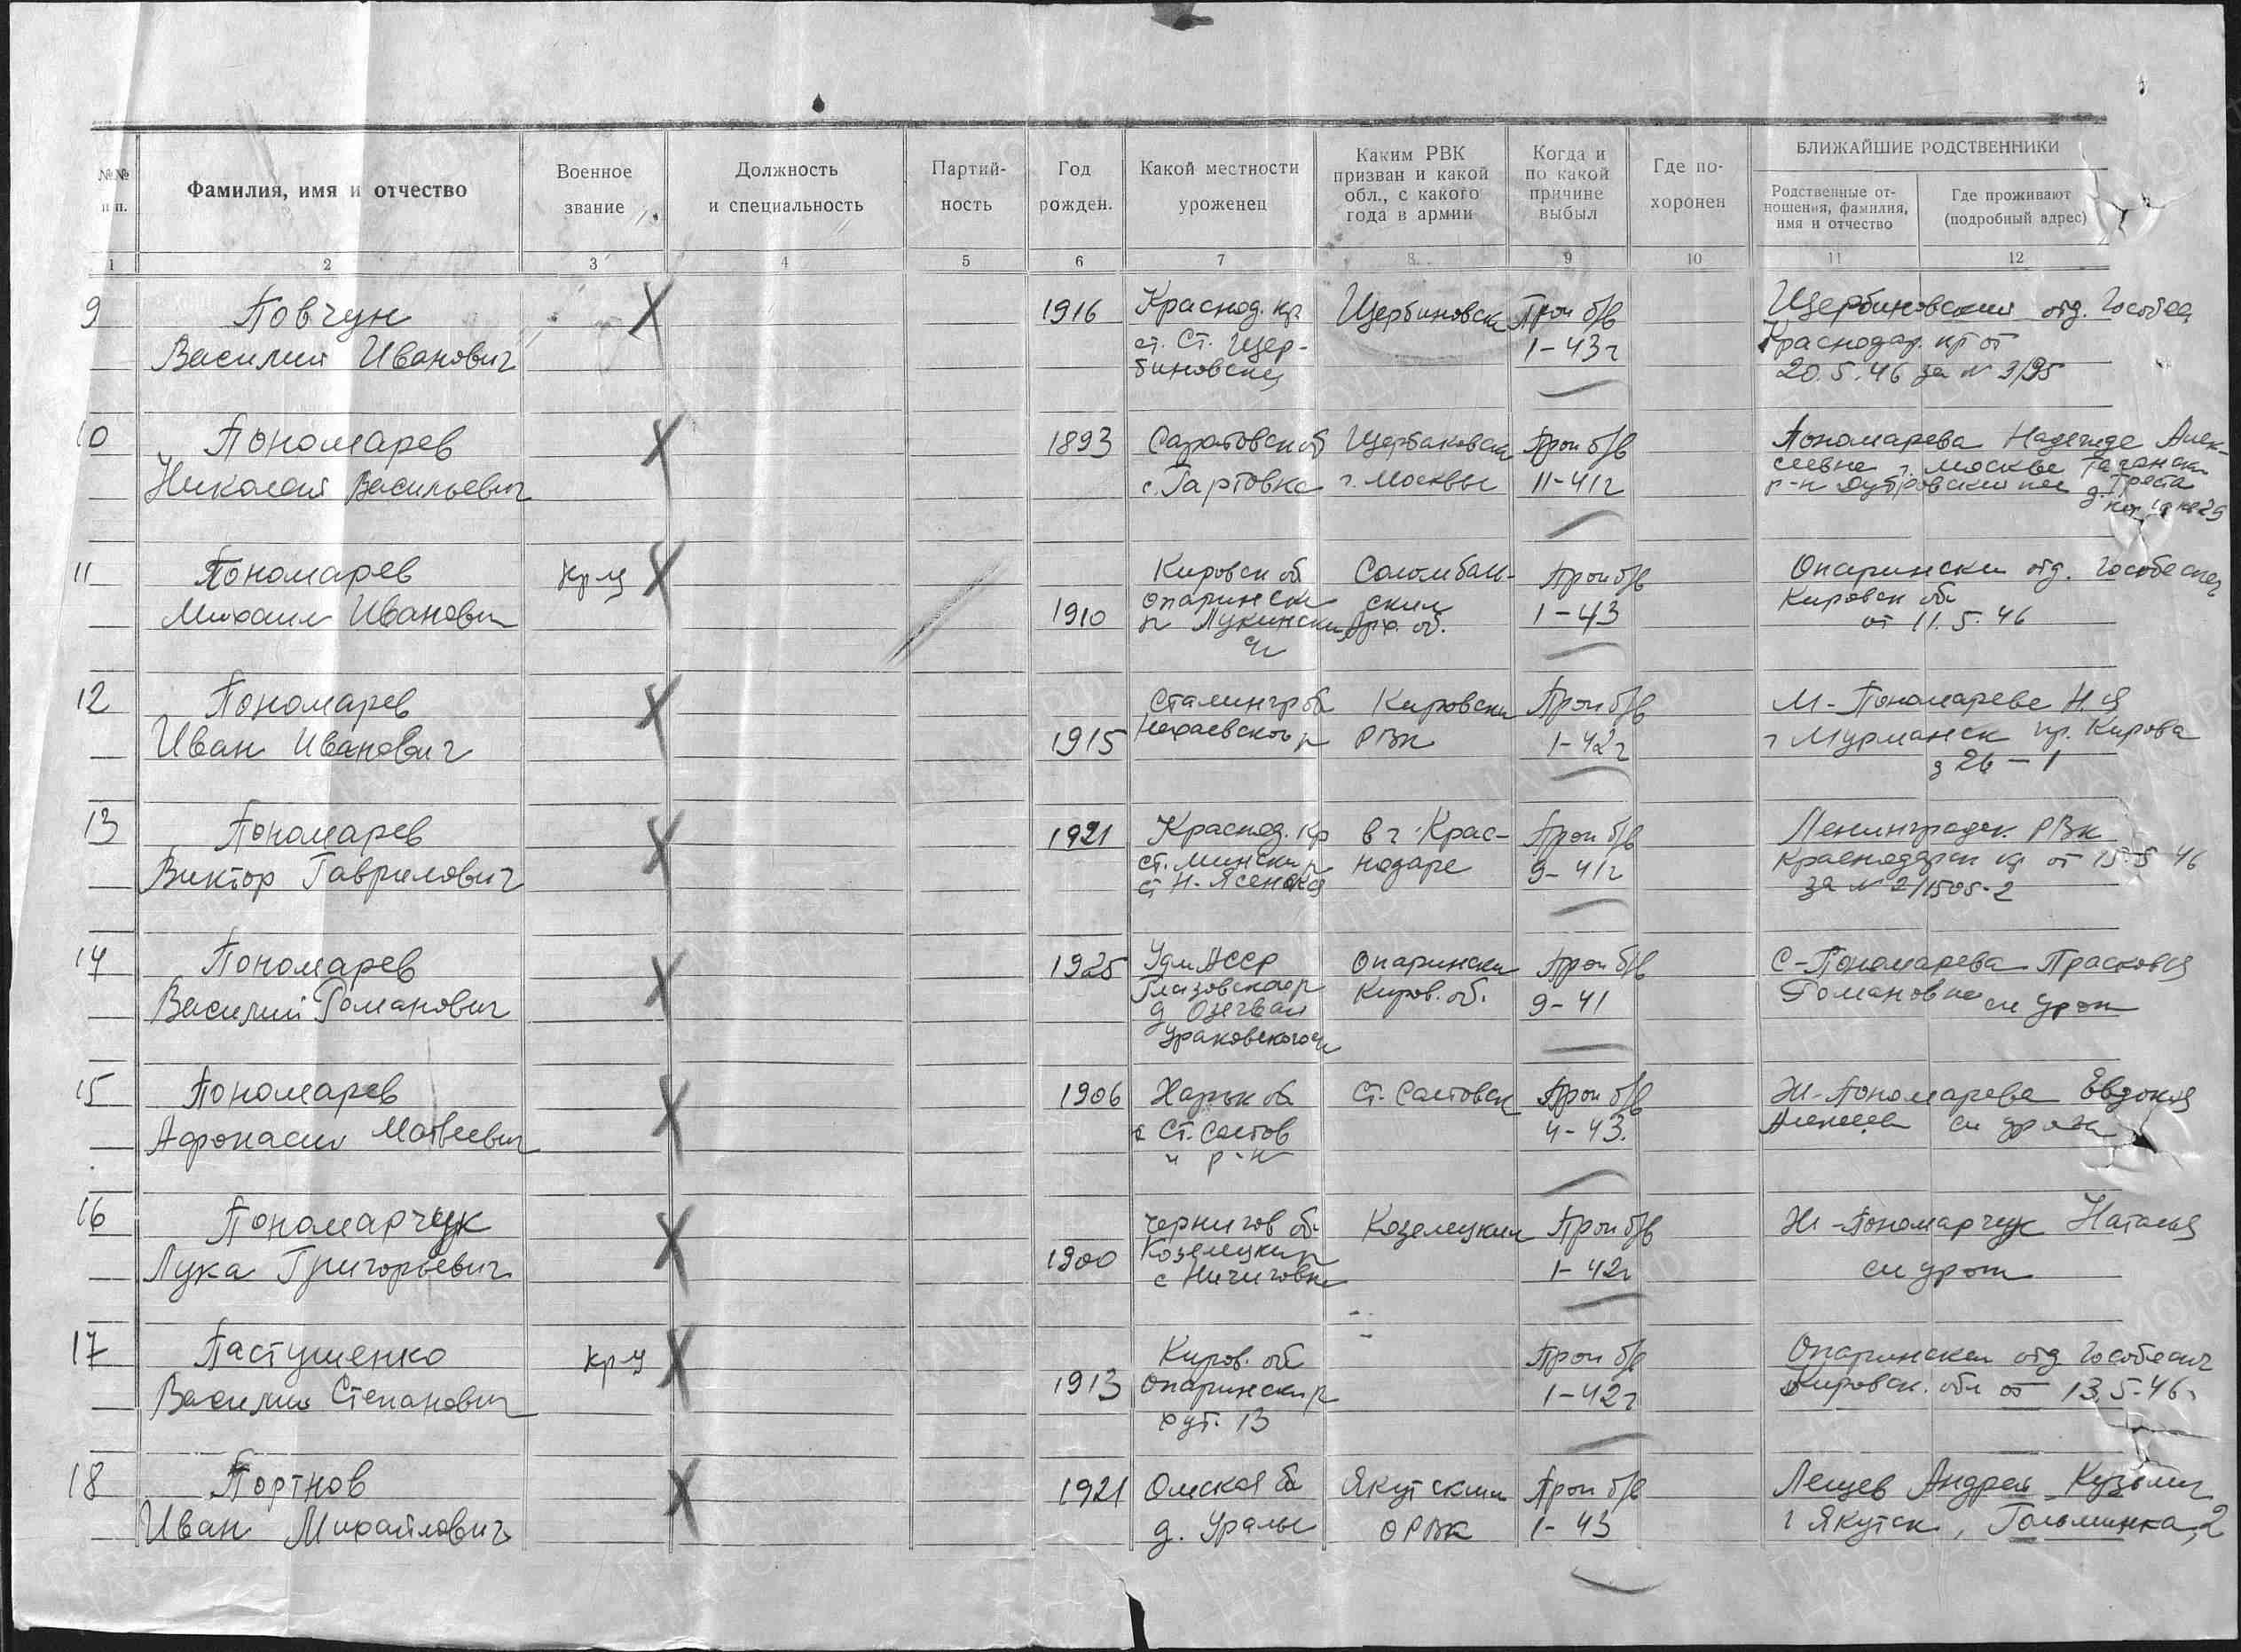 №№ п п.
Фамилия, имя и отчество
Военное звание
Должность и специальность
Партий-ность
Год рожден.
Какой местности уроженец
Каким РВК призван и какой обл., с какого года в армии
Когда и по какой причине выбыл
Где по-хоронен
БЛИЖАЙШИЕ РОДСТВЕННИКИ
Родственные от-ношения, фамилия, имя и отчество
Где проживают (подробный адрес)
1 2 3 4 5 6 7 8 9 10 11 12
9 Повчун 1916 Краснод. кр Щербиновск Проп б/в Щербиновский отд. Гособес
Василий Иванович ст. Ст. Щер- 1-43г Краснодар. кр от
биновска 20.5.46 за № 3/95
10 Пономарев 1893 Саратовск об Щербаковск Проп б/в Пономарева Надежде Алек-
Николай Васильевич с. Гартовка г. Москвы 11-41г сеевна г. Москве Таганск
р-н Дубровский д. Треста
11 Пономарев Кр-ц Кировск об Соломбаль- Проп б/в Опарински отд. Гособеспеч
Михаил Иванович 1910 Опарински ским 1-43 Кировск об
р Лукински Арх. об. от 11.5.46
12 Пономарев Сталингр об Кировски Проп б/в М-Пономареве Н.Я
Иван Иванович 1915 Нехаевского р РВК 1-42г г Мурманск пр. Кирова
26-1
13 Пономарев 1921 Краснод. кр в г. Крас- Проп б/в Ленинградск. РВК
Виктор Гаврилович ст. Мински р нодаре 9-41г Краснодарск кр от 15.5 46
ст Н-Ясенская за № 2/1505-2
14 Пономарев 1925 Удм АССР Опарински Проп б/в С-Пономарева Прасковья
Василий Романович Глазовского р Киров. об. 9-41 Романовна см урож
д Озегваи
Ураковского
15 Пономарев 1906 Харьк об Ст. Салтовск Проп б/в Ж-Пономарева Евдокия
Афонасий Матвеевич Ст. Салтов 4-43. Алексеев см урож
р-н
16 Пономарчук Чернигов об Козелецким Проп б/в Ж-Пономарчук Наталья
Лука Григорьевич 1900 Козелецки р 1-42г см урож
с Ничиговка
17 Пастушенко Кр-ц Киров. об Проп б/в Опарински отд Гособеспеч
Василий Степанович 1913 Опарински р 1-42г Кировск. обл от 13.5-46г
хут. 13
18 Портнов 1921 Омская об Якутским Проп б/в Лещев Андрей Кузьмич
Иван Михайлович д. Уралы ОРВК 1-43 г Якутск, Гольминка, 2